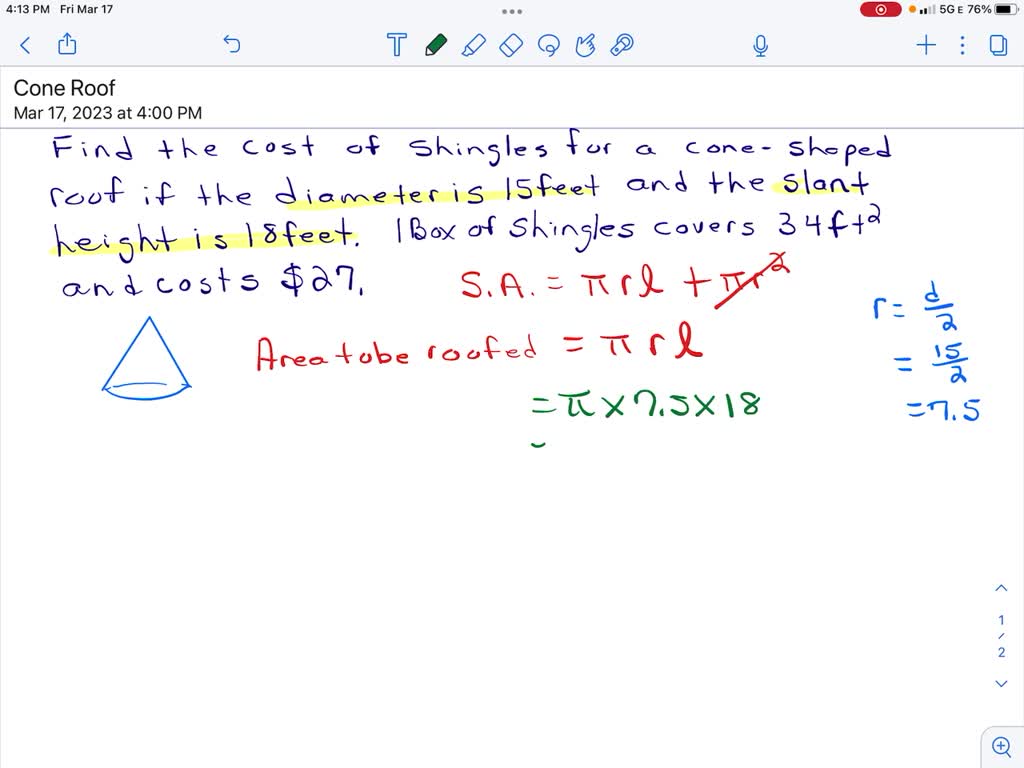 4:13 PM Fri Mar 17
5G E 76%
T
Cone Roof
Mar 17, 2023 at 4:00 PM
Find the cost of shingles for a cone-shaped
roof if the diameter is 15feet and the slant
height is 18feet. 1 Box of shingles covers 34ft²
and costs $27.
S.A. = πrl + πr²
r = d/2
Area to be roofed = πrl
= 15/2
= π × 7.5 × 18
= 7.5
1
/
2